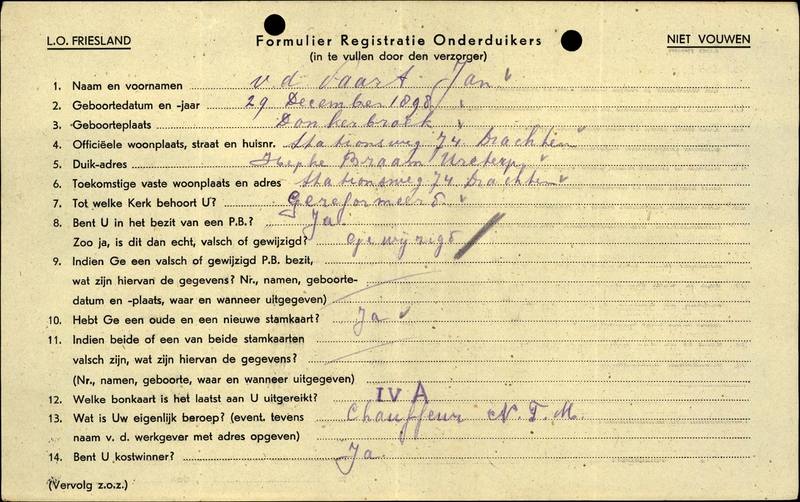 L.O. FRIESLAND
Formulier Registratie Onderduikers
NIET VOUWEN
(in te vullen door den verzorger)
1. Naam en voornamen v.d. Vaart Jan
2. Geboortedatum en -jaar 29 December 1898
3. Geboorteplaats Donkerbroek
4. Officiëele woonplaats, straat en huisnr. Stationsweg 74 Drachten
5. Duik-adres Braam Ureterp
6. Toekomstige vaste woonplaats en adres Stationsweg 74 Drachten
7. Tot welke Kerk behoort U? Gereformeerd
8. Bent U in het bezit van een P.B.? Ja
Zoo ja, is dit dan echt, valsch of gewijzigd? gewijzigd
9. Indien Ge een valsch of gewijzigd P.B. bezit,
wat zijn hiervan de gegevens? Nr., namen, geboorte-
datum en -plaats, waar en wanneer uitgegeven)
10. Hebt Ge een oude en een nieuwe stamkaart? Ja
11. Indien beide of een van beide stamkaarten
valsch zijn, wat zijn hiervan de gegevens?
(Nr., namen, geboorte, waar en wanneer uitgegeven)
12. Welke bonkaart is het laatst aan U uitgereikt? IV A
13. Wat is Uw eigenlijk beroep? (event. tevens Chauffeur N.T.M.
naam v. d. werkgever met adres opgeven)
14. Bent U kostwinner? Ja
(Vervolg z.o.z.)